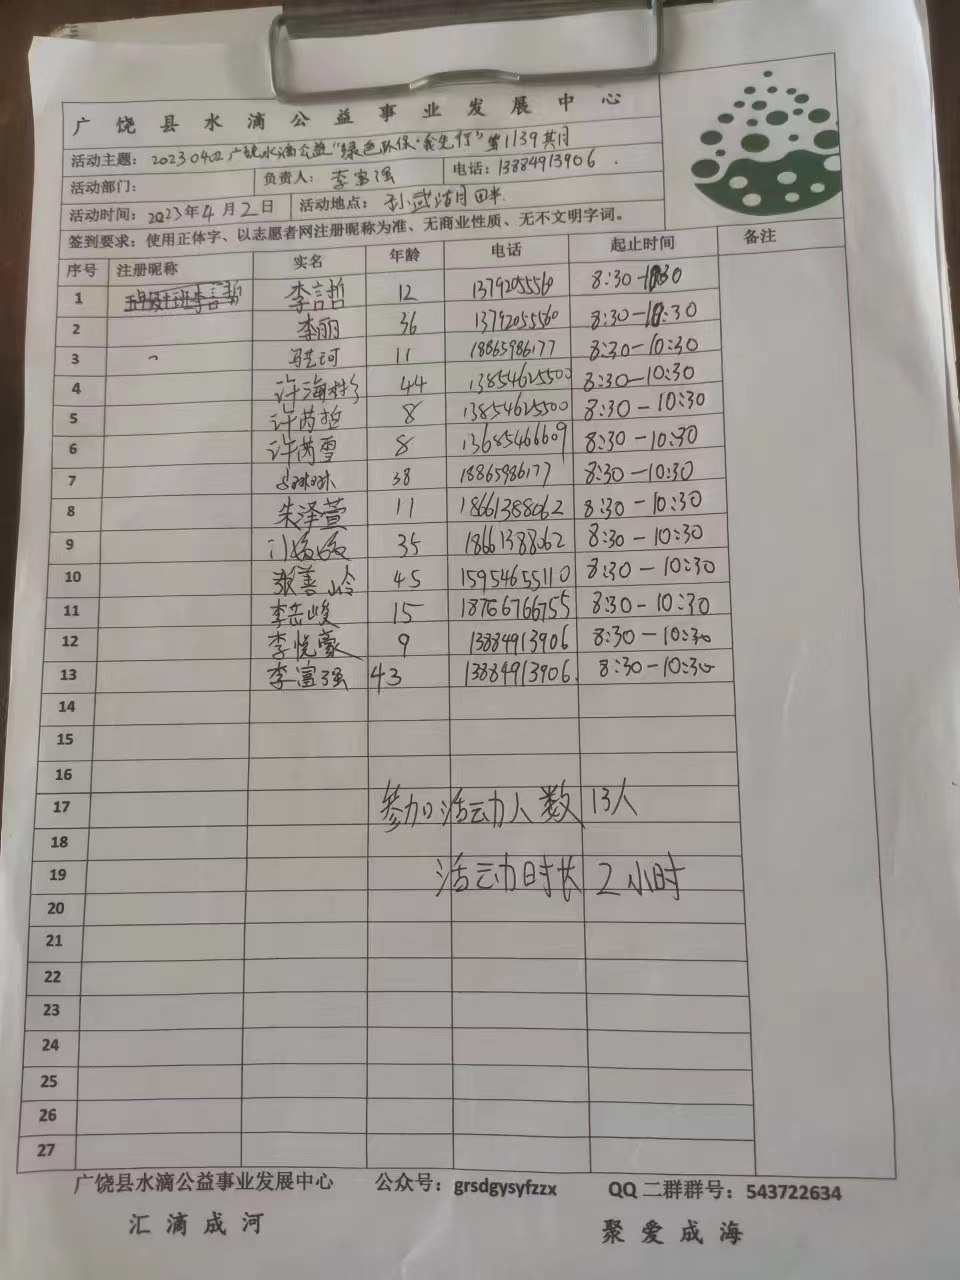 广饶县水滴公益事业发展中心
活动主题：20230402广饶水滴公益“绿色环保·我先行”第1139期
活动部门： 负责人：李富强 电话：13884913906.
活动时间：2023年4月2日 活动地点：孙武
签到要求：使用正体字、以志愿者网注册昵称为准、无商业性质、无不文明字词。
序号 注册昵称 实名 年龄 电话 起止时间 备注
1 李言哲 12 13792055560 8:30-10:30
2 李丽 36 13792055560 8:30-10:30
3 11 18865986177 8:30-10:30
4 许海彬 44 13854625500 8:30-10:30
5 许芮哲 8 13854625500 8:30-10:30
6 许芮雪 8 13685466609 8:30-10:30
7 38 18865986177 8:30-10:30
8 朱泽萱 11 18661388062 8:30-10:30
9 35 18661388062 8:30-10:30
10 张善岭 45 15954655110 8:30-10:30
11 李岳峻 15 18766766755 8:30-10:30
12 李悦豪 9 13884913906 8:30-10:30
13 李富强 43 13884913906. 8:30-10:30
14
15
16
17 参加活动人数 13人
18
19 活动时长 2小时
20
21
22
23
24
25
26
27
广饶县水滴公益事业发展中心 公众号：grsdgysyfzzx QQ二群群号：543722634
汇滴成河 聚爱成海